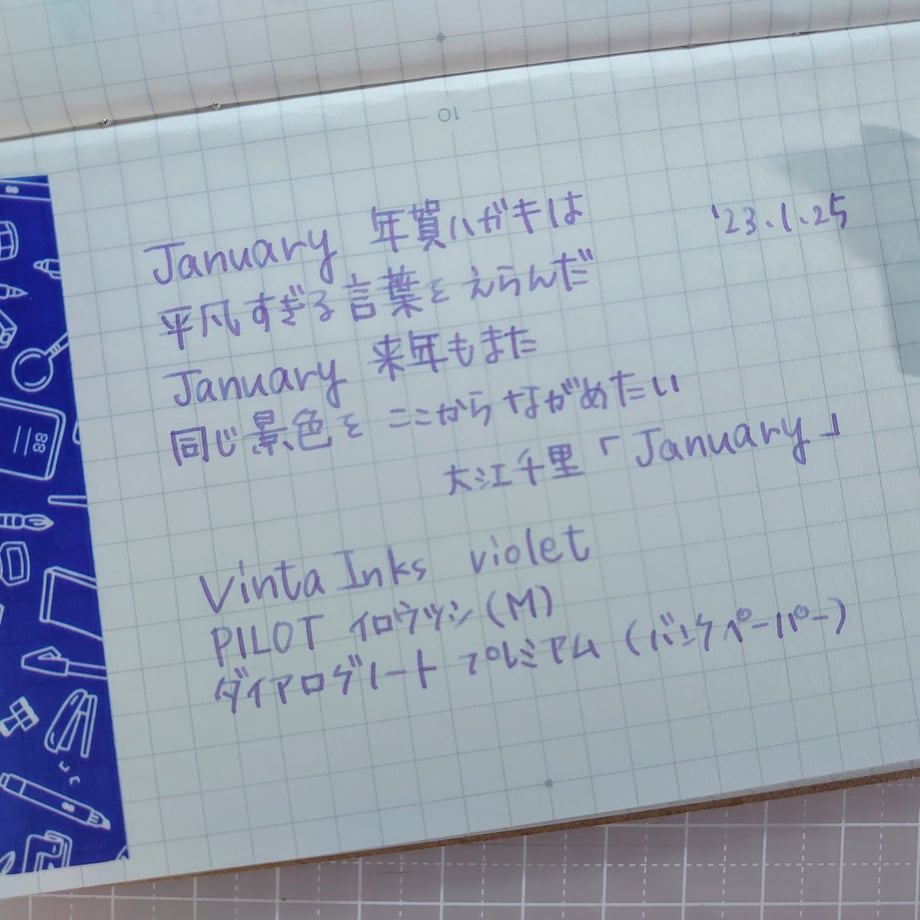 10
'23.1.25
January 年賀ハガキは
平凡すぎる言葉をえらんだ
January 来年もまた
同じ景色を ここからながめたい
大江千里「January」
Vinta Inks violet
PILOT イロウツシ(M)
ダイアログノート プレミアム (バンクペーパー)